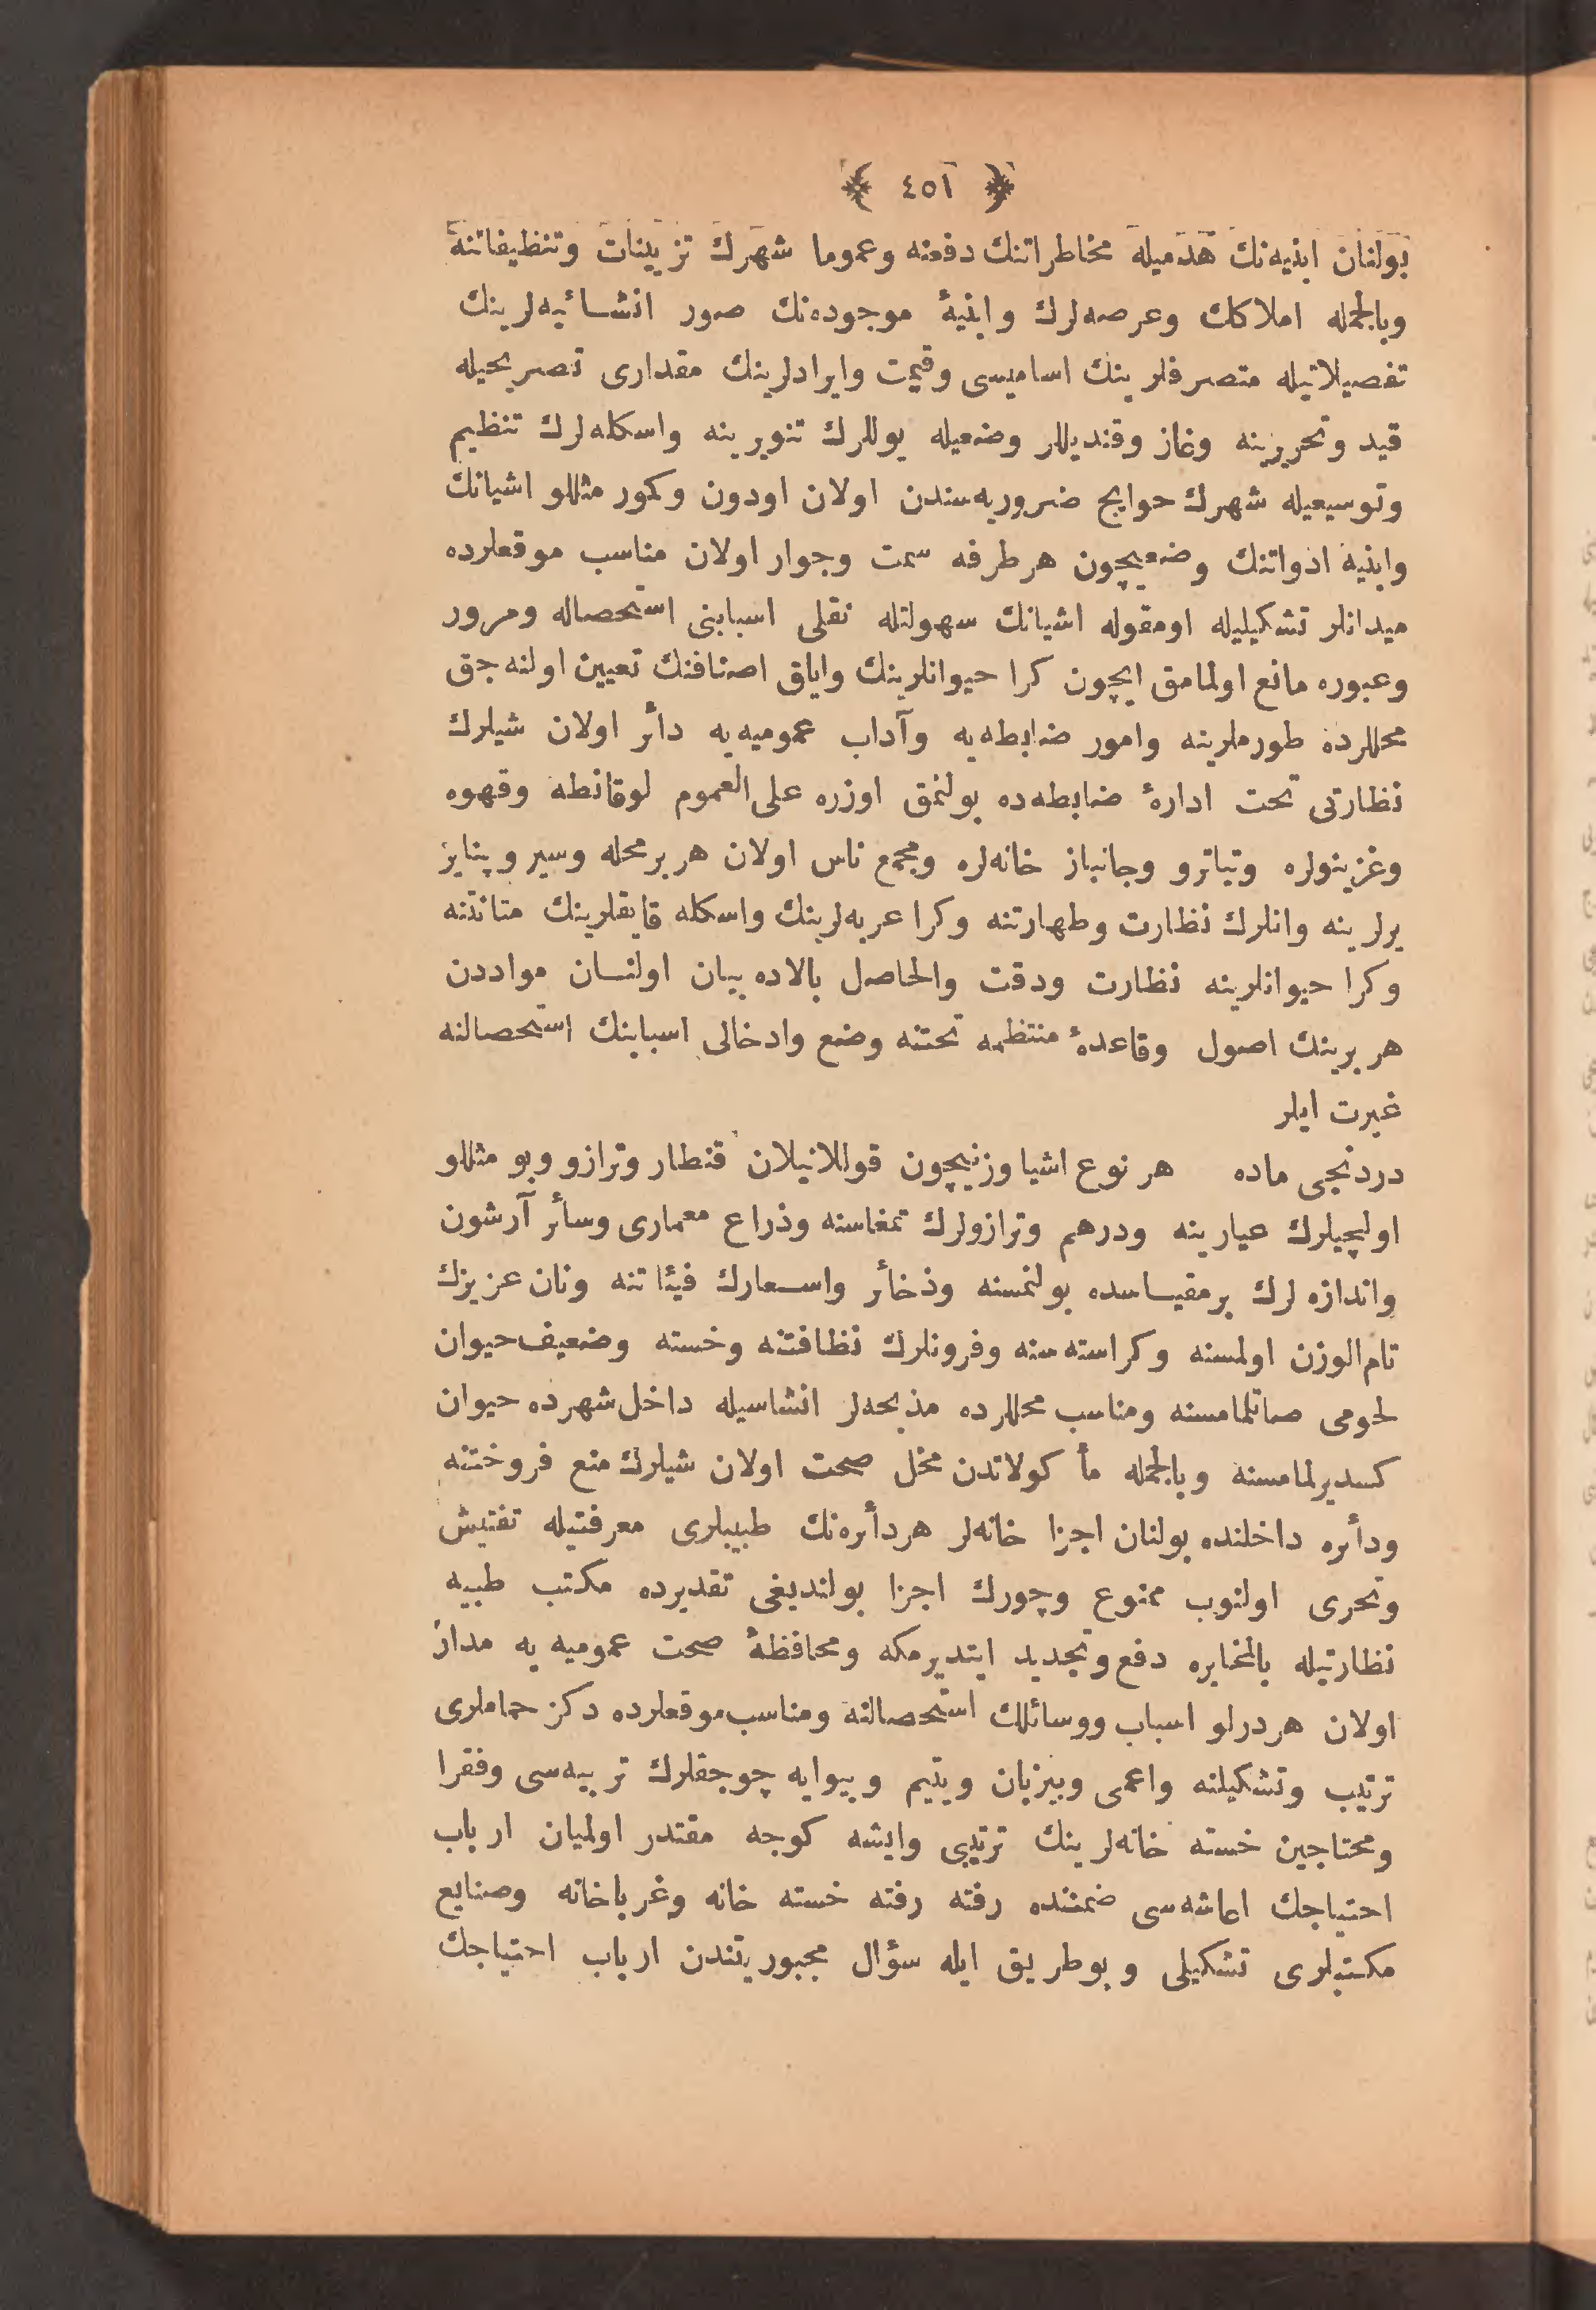 ﴿ ٤٥١ ﴾
بولنان ابنيه‌نك هدميله مخاطراتنك دفعنه وعموما شهرك تزيينات وتنظيفاتنه
وبالجمله املاكك وعرصه‌لرك وابنيهٔ موجوده‌نك صور انشائيه‌لرينك
تفصيلاتيله متصرفلرينك اساميسى وقيمت وايرادلرينك مقدارى تصريحيله
قيد وتحريرينه وغاز وقنديللر وضعيله يوللرك تنويرينه واسكله‌لرك تنظيم
وتوسيعيله شهرك حوايج ضروريه‌سندن اولان اودون وكمور مثللو اشيانك
وابنيه ادواتنك وضعيچون هر طرفه سمت وجوار اولان مناسب موقعلرده
ميدانلر تشكيليله اومقوله اشيانك سهولتله نقلى اسبابنى استحصاله ومرور
وعبوره مانع اولمامق ايچون كرا حيوانلرينك واياق اصنافنك تعيين اولنه‌جق
محللرده طورملرينه وامور ضابطه‌يه وآداب عموميه‌يه دائر اولان شيلرك
نظارتى تحت ادارهٔ ضابطه‌ده بولنمق اوزره على العموم لوقانطه وقهوه
وغزينولره وتياترو وجانباز خانه‌لره ومجمع ناس اولان هر بر محله وسير وپناير
يرلرينه وانلرك نظارت وطهارتنه وكرا عربه‌لرينك واسكله قايقلرينك متانتنه
وكرا حيوانلرينه نظارت ودقت والحاصل بالاده بيان اولنان مواددن
هر برينك اصول وقاعدهٔ منتظمه تحتنه وضع وادخالى اسبابنك استحصالنه
غيرت ايلر
دردنجى ماده هر نوع اشيا وزنيچون قوللانيلان قنطار وترازو وبو مثللو
اولچيلرك عيارينه ودرهم وترازولرك تمغاسنه وذراع معمارى وسائر آرشون
واندازه‌لرك برمقياسده بولنمسنه وذخائر واسعارك فيئاتنه ونان عزيزك
تام الوزن اولمسنه وكراسته‌سنه وفرونلرك نظافتنه وخسته وضعيف حيوان
لحومى صاتلمامسنه ومناسب محللرده مذبحه‌لر انشاسيله داخل شهرده حيوان
كسديرلمامسنه وبالجمله مأكولاتدن مخل صحت اولان شيلرك منع فروختنه
ودائره داخلنده بولنان اجزا خانه‌لر هر دائره‌نك طبيبلرى معرفتيله تفتيش
وتحرى اولنوب ممنوع وچورك اجزا بولنديغى تقديرده مكتب طبيه
نظارتيله بالمخابره دفع وتجديد ايتديرمكه ومحافظهٔ صحت عموميه‌يه مدار
اولان هر درلو اسباب ووسائلك استحصالنه ومناسب موقعلرده دكز حماملرى
ترتيب وتشكيلنه واعمى وبيزبان ويتيم وبيوايه چوجقلرك تربيه‌سى وفقرا
ومحتاجين خسته خانه‌لرينك ترتيبى وايشه كوجه مقتدر اولميان ارباب
احتياجك اعاشه‌سى ضمننده رفته رفته خسته خانه وغرباخانه وصنايع
مكتبلرى تشكيلى وبو طريق ايله سؤال مجبوريتندن ارباب احتياجك